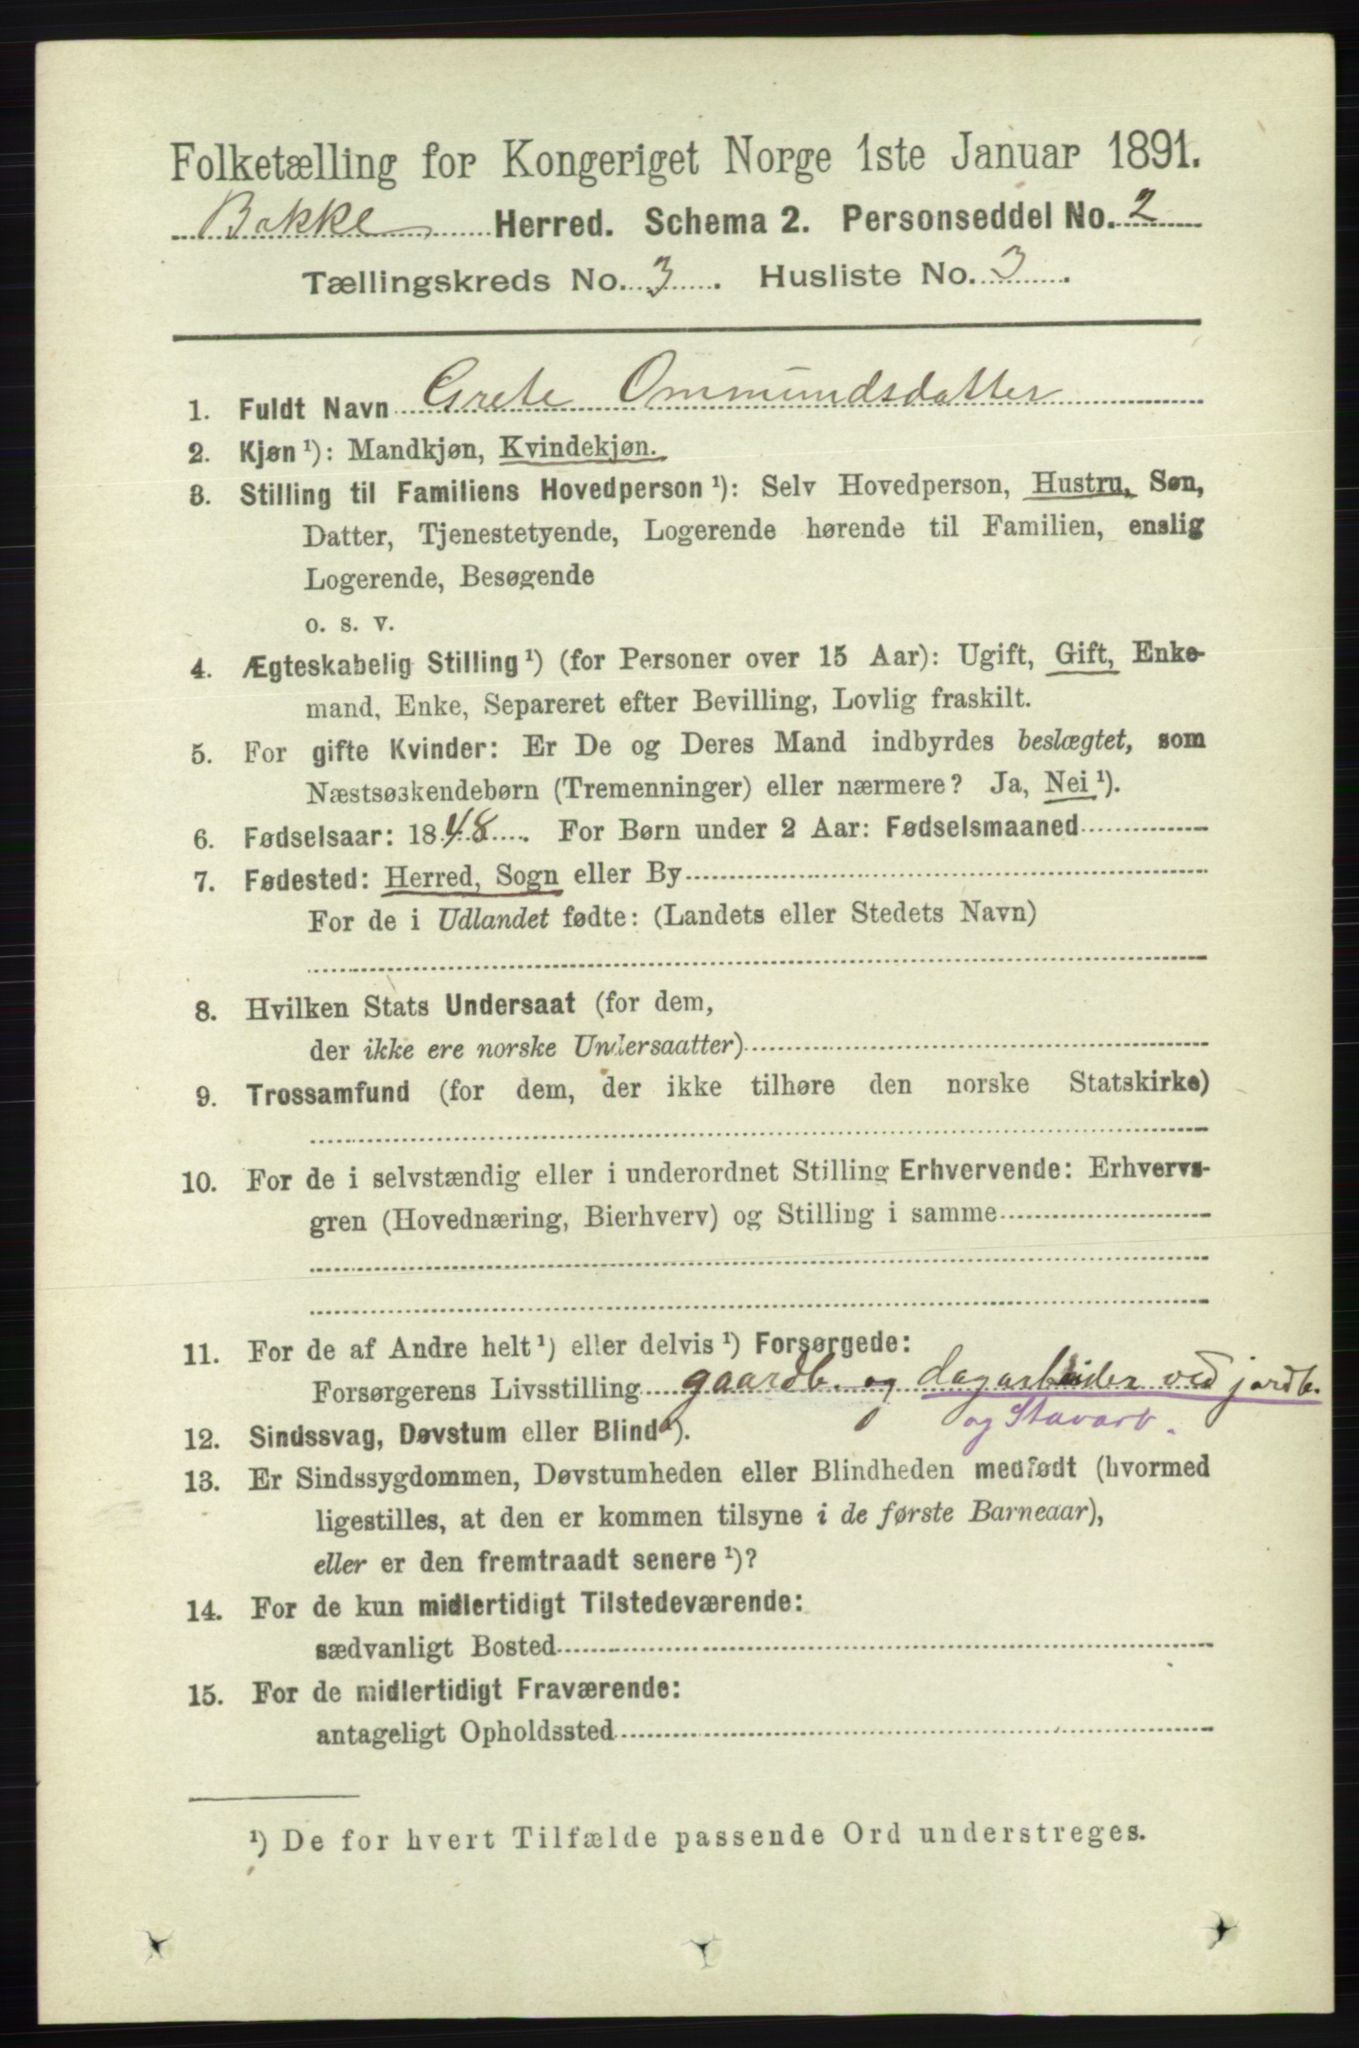 Folketælling for Kongeriget Norge 1ste Januar 1891.
Bakke Herred. Schema 2. Personseddel No. 2
Tællingskreds No. 3. Husliste No. 3.
1. Fuldt Navn Grete Ommundsdatter
2. Kjøn ¹): Mandkjøn, Kvindekjøn.
3. Stilling til Familiens Hovedperson ¹): Selv Hovedperson, Hustru, Søn,
Datter, Tjenestetyende, Logerende hørende til Familien, enslig
Logerende, Besøgende
o. s. v.
4. Ægteskabelig Stilling ¹) (for Personer over 15 Aar): Ugift, Gift, Enke-
mand, Enke, Separeret efter Bevilling, Lovlig fraskilt.
5. For gifte Kvinder: Er De og Deres Mand indbyrdes beslægtet, som
Næstsøskendebørn (Tremenninger) eller nærmere? Ja, Nei ¹).
6. Fødselsaar: 1848. For Børn under 2 Aar: Fødselsmaaned
7. Fødested: Herred, Sogn eller By
For de i Udlandet fødte: (Landets eller Stedets Navn)
8. Hvilken Stats Undersaat (for dem,
der ikke ere norske Undersaatter)
9. Trossamfund (for dem, der ikke tilhøre den norske Statskirke)
10. For de i selvstændig eller i underordnet Stilling Erhvervende: Erhvervs-
gren (Hovednæring, Bierhverv) og Stilling i samme
11. For de af Andre helt ¹) eller delvis ¹) Forsørgede:
Forsørgerens Livsstilling gaardb. og dagarbeider ved jordb.
og Stavarb.
12. Sindssvag, Døvstum eller Blind ¹).
13. Er Sindssygdommen, Døvstumheden eller Blindheden medfødt (hvormed
ligestilles, at den er kommen tilsyne i de første Barneaar),
eller er den fremtraadt senere ¹)?
14. For de kun midlertidigt Tilstedeværende:
sædvanligt Bosted
15. For de midlertidigt Fraværende:
antageligt Opholdssted
¹) De for hvert Tilfælde passende Ord understreges.